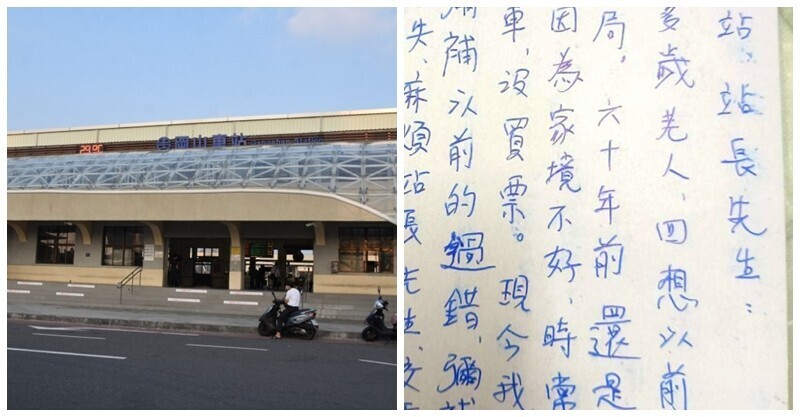 岡山車站
Gangshan Station
站、站長先生：
多歲老人，回想以前
局，六十年前還是
因為家境不好，時常
車，沒買票。現今我
補以前的過錯，彌
失、麻煩站長先生、交